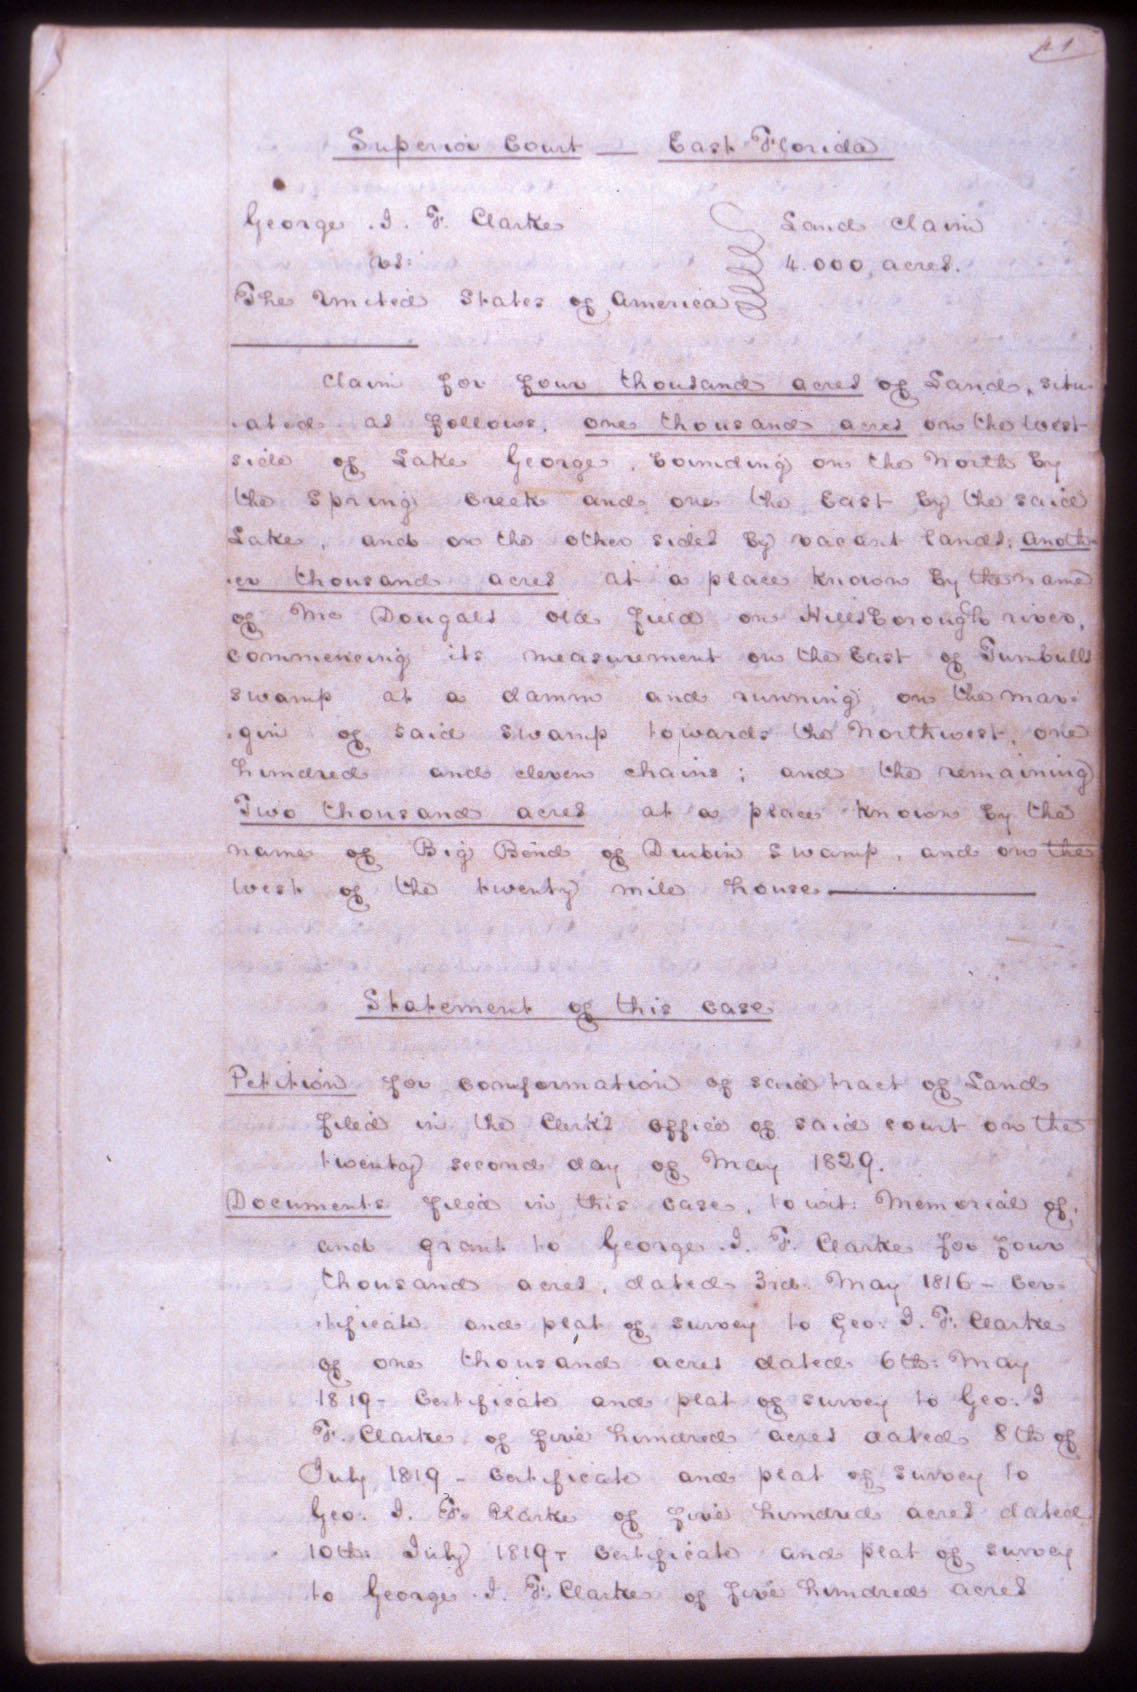 p 1
Superior Court — East Florida
George J. F. Clarke Land Claim
vs: 4.000, acres.
The United States of America
Claim for four thousand acres of Land, situ-
-ated as follows, one thousand acres on the West
side of Lake George, bounding on the North by
the Spring Creek and on the East by the said
Lake, and on the other sides by vacant lands; anoth-
-er thousand acres at a place known by the name
of Mc Dougals old field on Hillsborough river,
commencing its measurement on the East of Turnbulls
swamp at a damm and running on the mar-
-gin of said swamp towards the Northwest, one
hundred and eleven chains; and the remaining
Two thousand acres at a place known by the
name of Big Bend of Durbin Swamp, and on the
West of the twenty mile house
Statement of this case
Petition for confirmation of said tract of Land
filed in the Clerk's office of said court on the
twenty second day of May 1829.
Documents filed in this case, to wit: Memorial of,
and grant to George J. F. Clarke for four
thousand acres, dated 3rd. May 1816 – Cer-
-tificate and plat of survey to Geo: J. F. Clarke
of one thousand acres dated 6th: May
1819 – Certificate and plat of survey to Geo: J
F. Clarke of five hundred acres dated 8th of
July 1819 – Certificate and plat of survey to
Geo: J. F. Clarke of five hundred acres dated
10th: July 1819 – Certificate and plat of survey
to George J. F. Clarke of five hundred acres